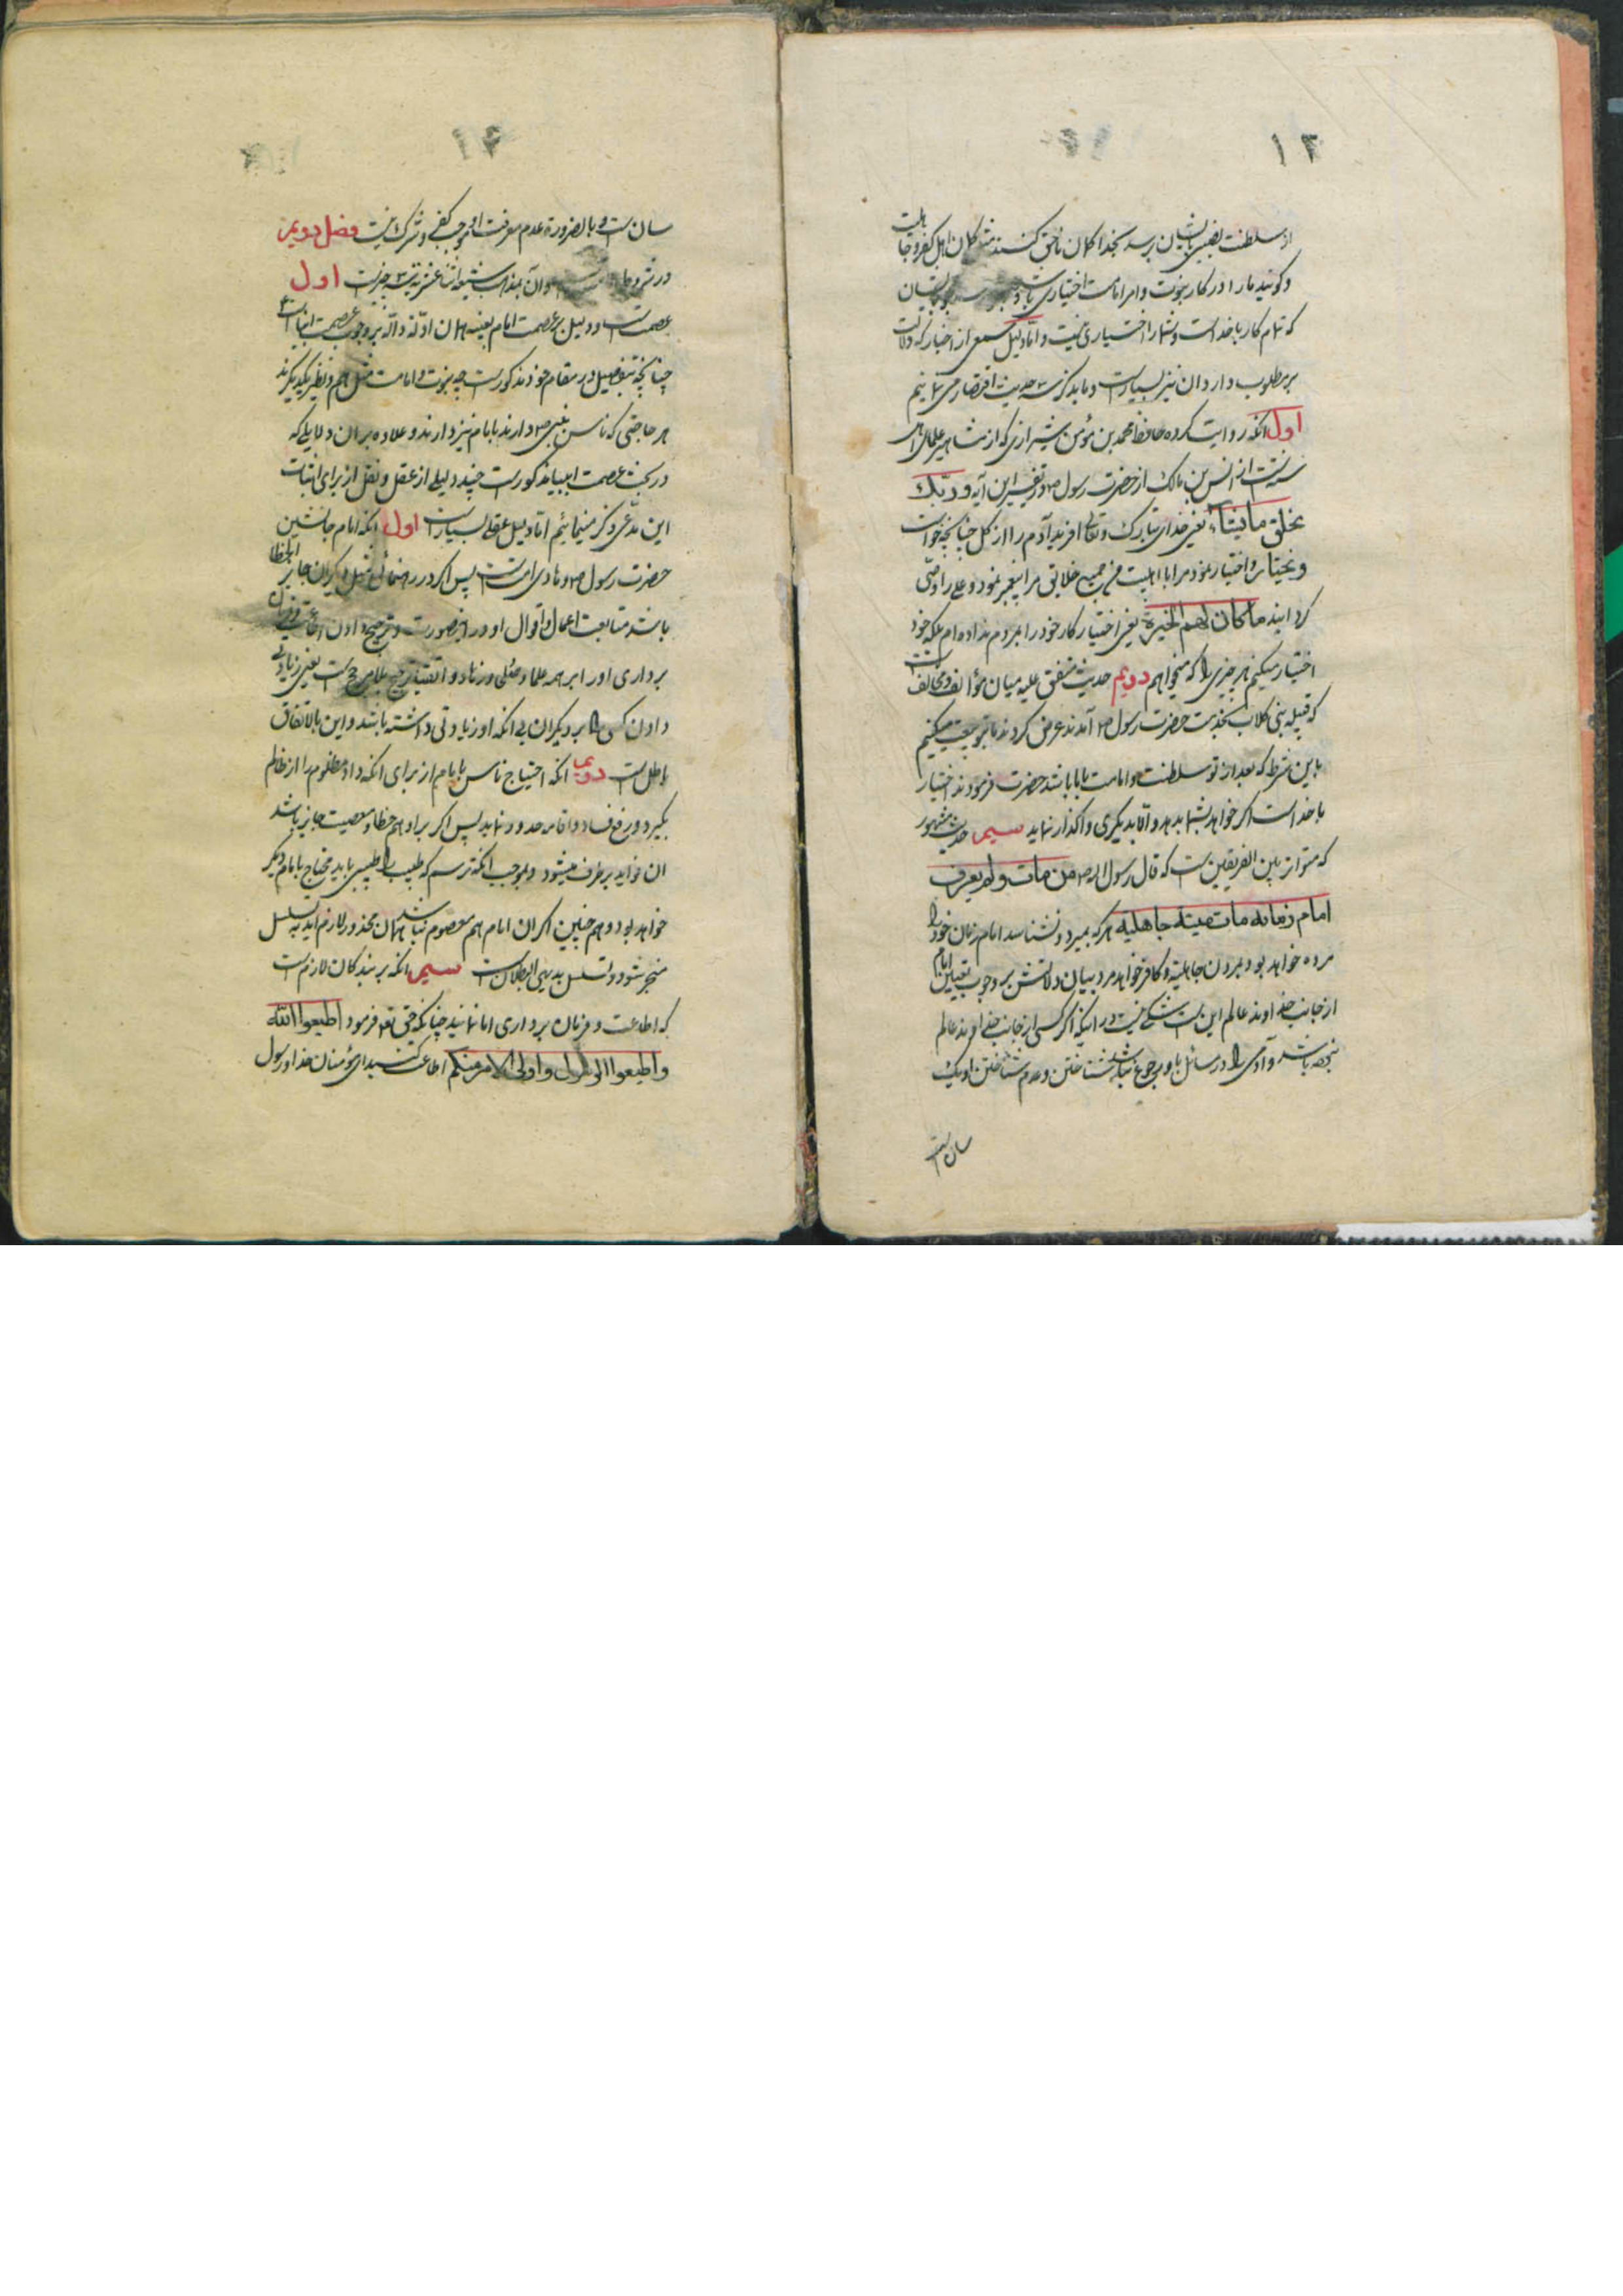 ۱۳
از سلطنت نصیبی بایشان برسد بخدا کلان ناحق کنند مثل کلان اهل کفر و جاهلیت
و گویند ما را در کار نبوت و امر امامت اختیاری باشد
که تمام کار با خداست و شما را اختیاری نیست و اما دلیل سمعی از اخبار که دلالت
بر مطلوب دارد ان نیز بسیارست و ما بذکر سه حدیث اقتصار می نمائیم
اول انکه روایت کرده حافظ محمد بن مؤمن شیرازی که از مشاهیر علمای اهل
سنت است از انس بن مالک از حضرت رسول ص در تفسیر این آیه و ربّک
یخلق ما یشاء یعنی خدای تبارک و تعالی افرید آدم را از گل چنانچه خواست
و یختار و اختیار نمود مرا با اهلبیت من بر جمیع خلایق مرا پیغمبر نمود و علی را وصی
گردانید ما کان لهم الخیرة یعنی اختیار کار خود را بمردم نداده ام بلکه خود
اختیار میکنم هر چیزی را که میخواهم دویم حدیث متفق علیه میان مؤالف و مخالف است
که قبیله بنی کلاب بخدمت حضرت رسول ص آمدند عرض کردند ما بتو بیعت میکنیم
باین شرط که بعد از تو سلطنت و امامت با ما باشد حضرت فرمودند اختیار
با خداست اکر خواهد بشما بدهد و الا بدیکری واکذار نماید سیم حدیث مشهور
که متواتر بین الفریقین ست که قال رسول الله ص من مات و لم یعرف
امام زمانه مات میتة جاهلیة هر که بمیرد و نشناسد امام زمان خود را
مرده خواهد بود بمردن جاهلیة و کافر خواهد مرد بیان دلالتش بر وجوب تعیین امام
از جانب خداوند عالم این ست شکی نیست در اینکه اکر کسی از جانب خداوند عالم
باشد و آدمی را در مسائل باو رجوع نباشد شناختن و عدم شناختن او یک
سان است
۱۴
سان ست و بالضرورة عدم معرفت او موجب کفر و شرک نیست فصل دویم
در شروط و آن بمذهب شیعه اثنا عشریه سه چیزست اول
عصمت ست و دلیل بر عصمت امام بعینه همان ادلّه دالّه بر وجوب عصمت انبیاست
چنانچه بتفصیل در مقام خود مذکورست چه نبوت و امامت مثل هم و نظیر یکدیکرند
هر حاجتی که ناس بنبی ص دارند بامام نیز دارند و علاوه بر ان دلایلی که
در بحث عصمت انبیا مذکورست چند دلیلی از عقل و نقل از برای اثبات
این مدّعی ذکر مینمائیم اما دلیل عقلی بسیارست اول انکه امام جانشین
حضرت رسول ص و هادی امت ست پس اکر در رهنمائی مثل دیکران جایز الخطا
باشد متابعت اعمال و اقوال او در اینصورت و ترجیح دادن اطاعت و فرمان
برداری او را بر همه علما و صلحا و زهاد و اتقیا ترجیح بلا مرجح ست یعنی زیادتی
دادن کسی را بر دیکران بی انکه او زیادتی داشته باشد و این بالاتفاق
باطل ست دویم انکه احتیاج ناس بامام از برای انکه داد مظلوم را از ظالم
بکیرد و رفع فساد و اقامه حدود نماید پس اکر بر او هم خطا و معصیت جایز باشد
ان فواید برطرف میشود و بموجب انکه ترسم که طبیب را طبیبی باید محتاج بامام دیکر
خواهد بود و هم چنین اکر ان امام هم معصوم نباشد همان محذور لازم اید به تسلسل
منجر شود و تسلسل بدیهی البطلان ست سیم انکه بر بندکان لازم ست
که اطاعت و فرمان برداری امام نمایند چنانکه حق تعه فرمود اطیعوا الله
و اطیعوا الرسول و اولی الامر منکم اطاعت کنید ای مؤمنان خدا و رسول